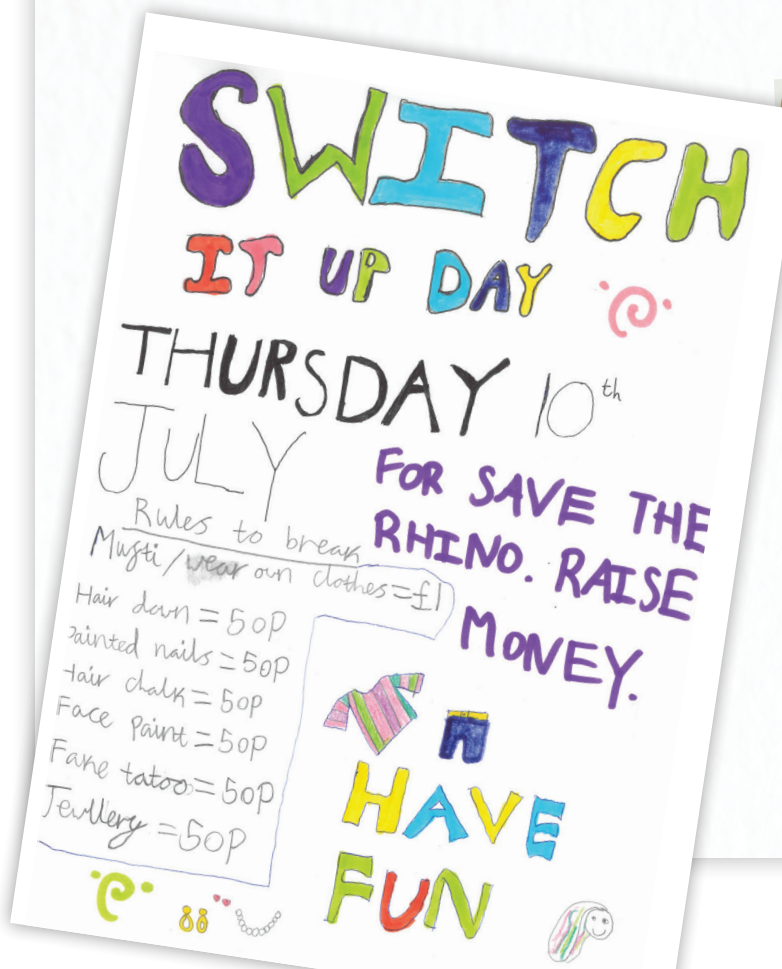 SWITCH
IT UP DAY
THURSDAY 10th
JULY
FOR SAVE THE
RHINO. RAISE
MONEY.
Rules to break
Mufti/wear own clothes=£1
Hair down=50p
Painted nails=50p
Hair chalk=50p
Face Paint=50p
Fake tatoo=50p
Jewllery=50p
HAVE
FUN